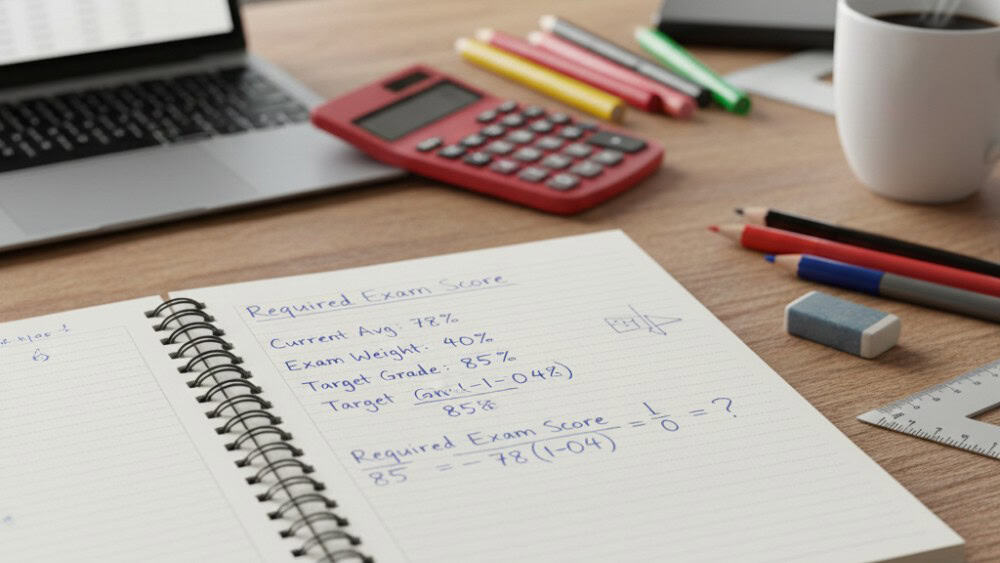 Required Exam Score
Current Avg: 78%
Exam Weight: 40%
Target Grade: 85%
Target
85%
Required Exam Score = 1/0 = ?
85 = - 78(1-04)